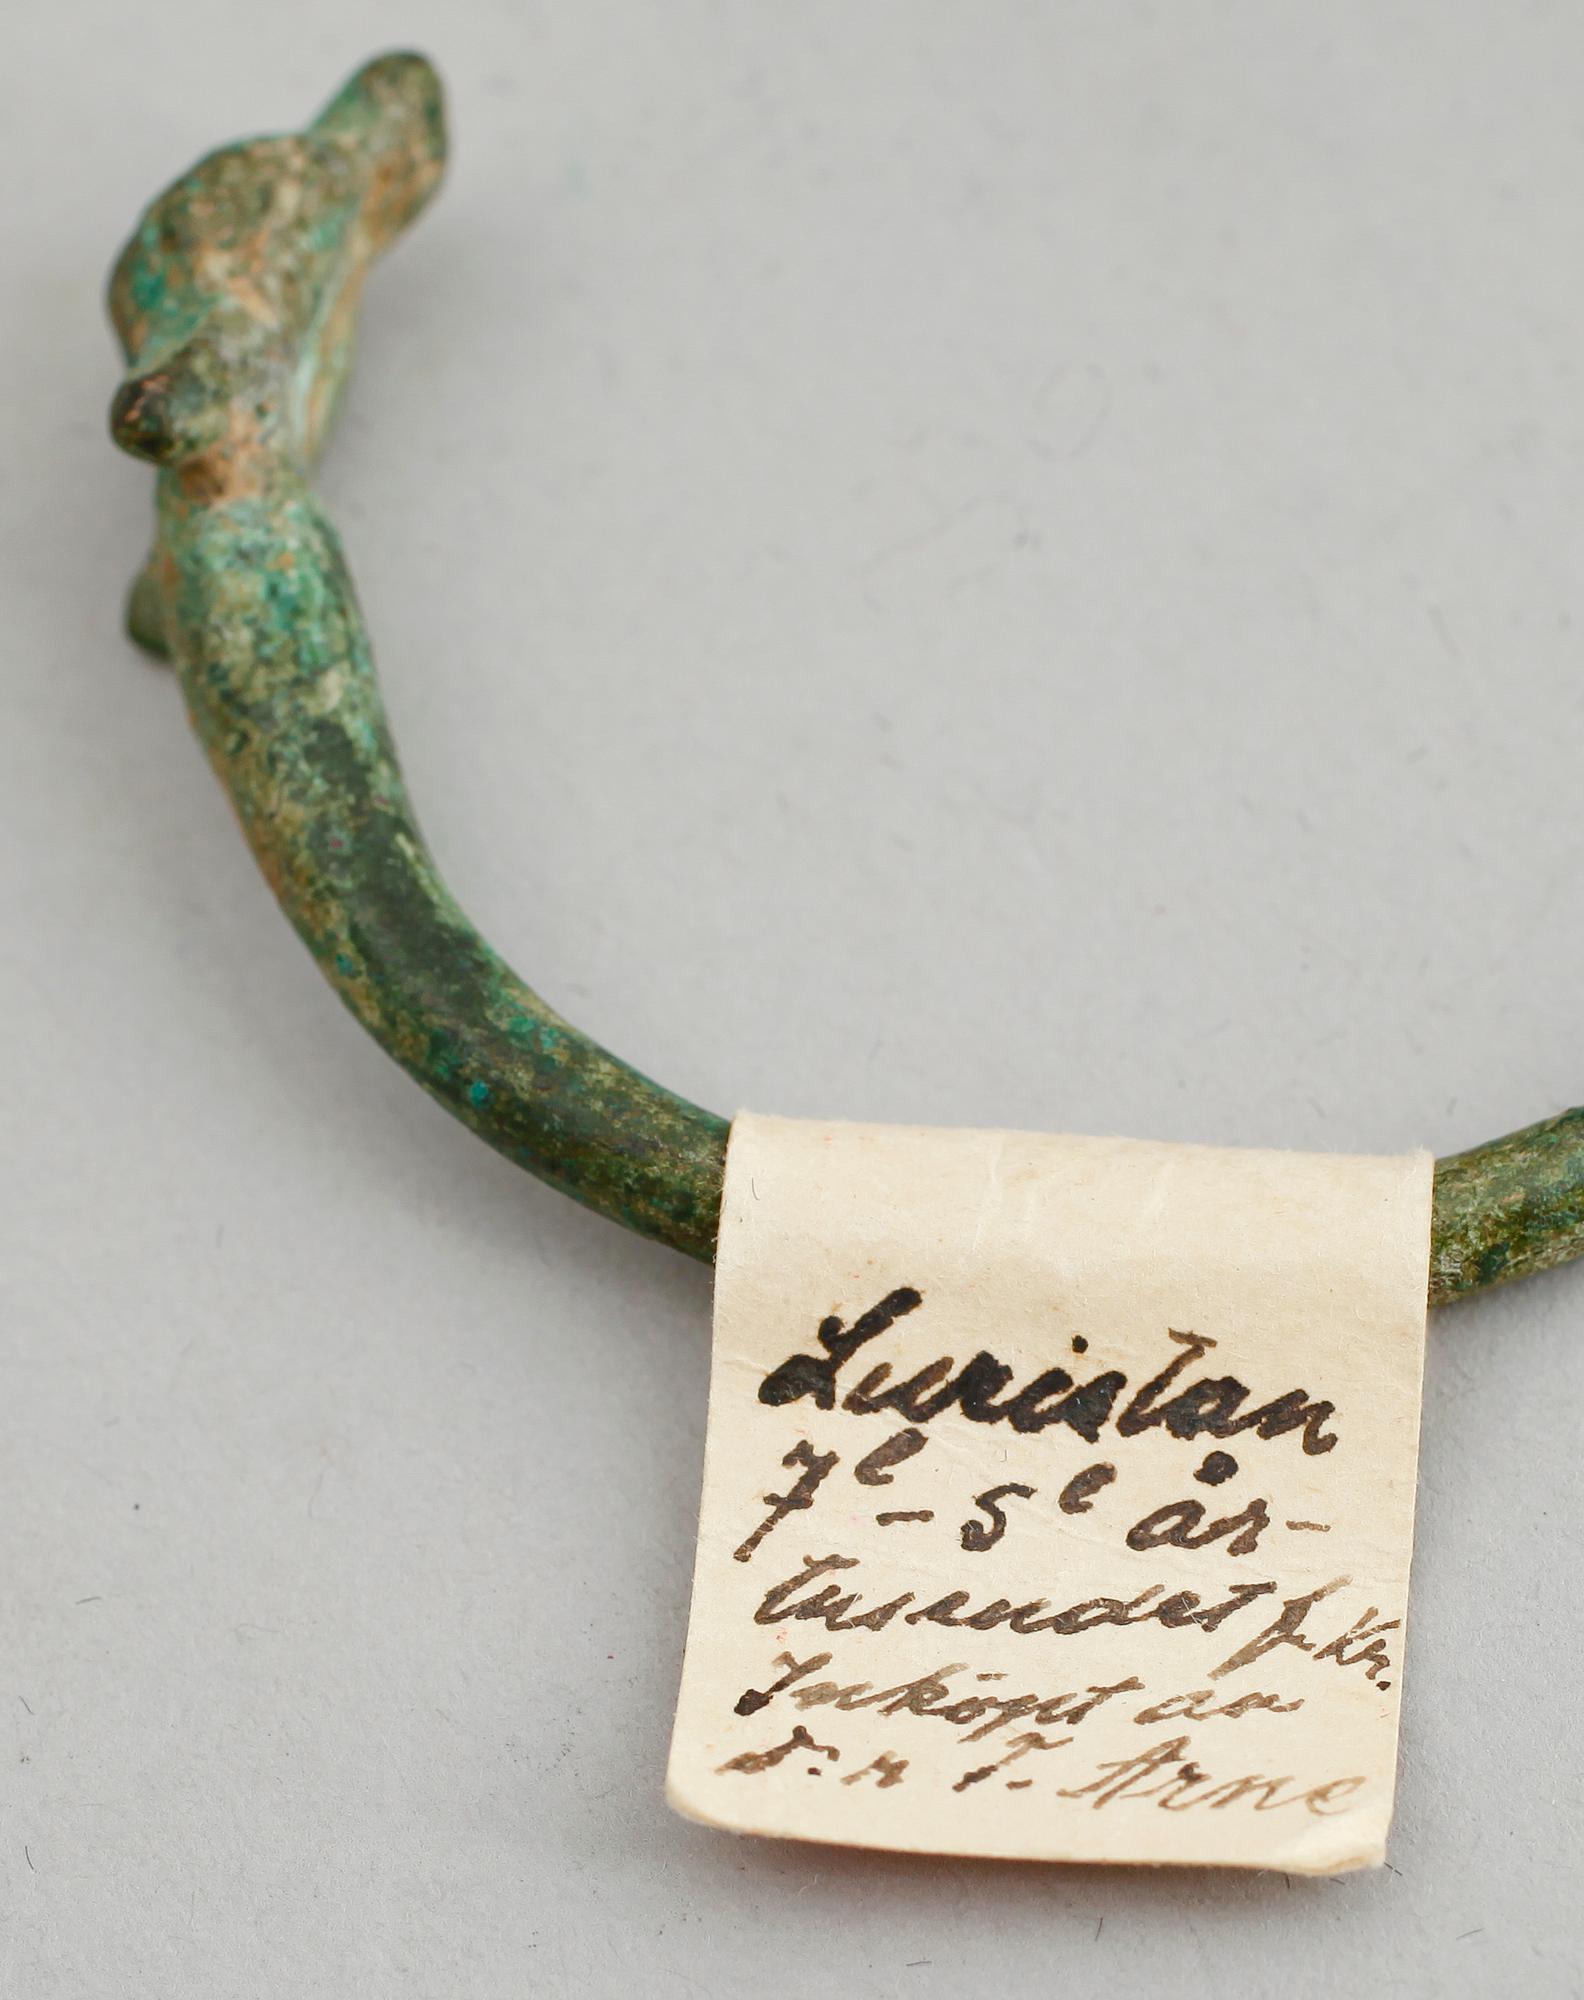 Luristan
7e - 5e år-
tusendet f. Kr.
Inköpt av
T. Arne